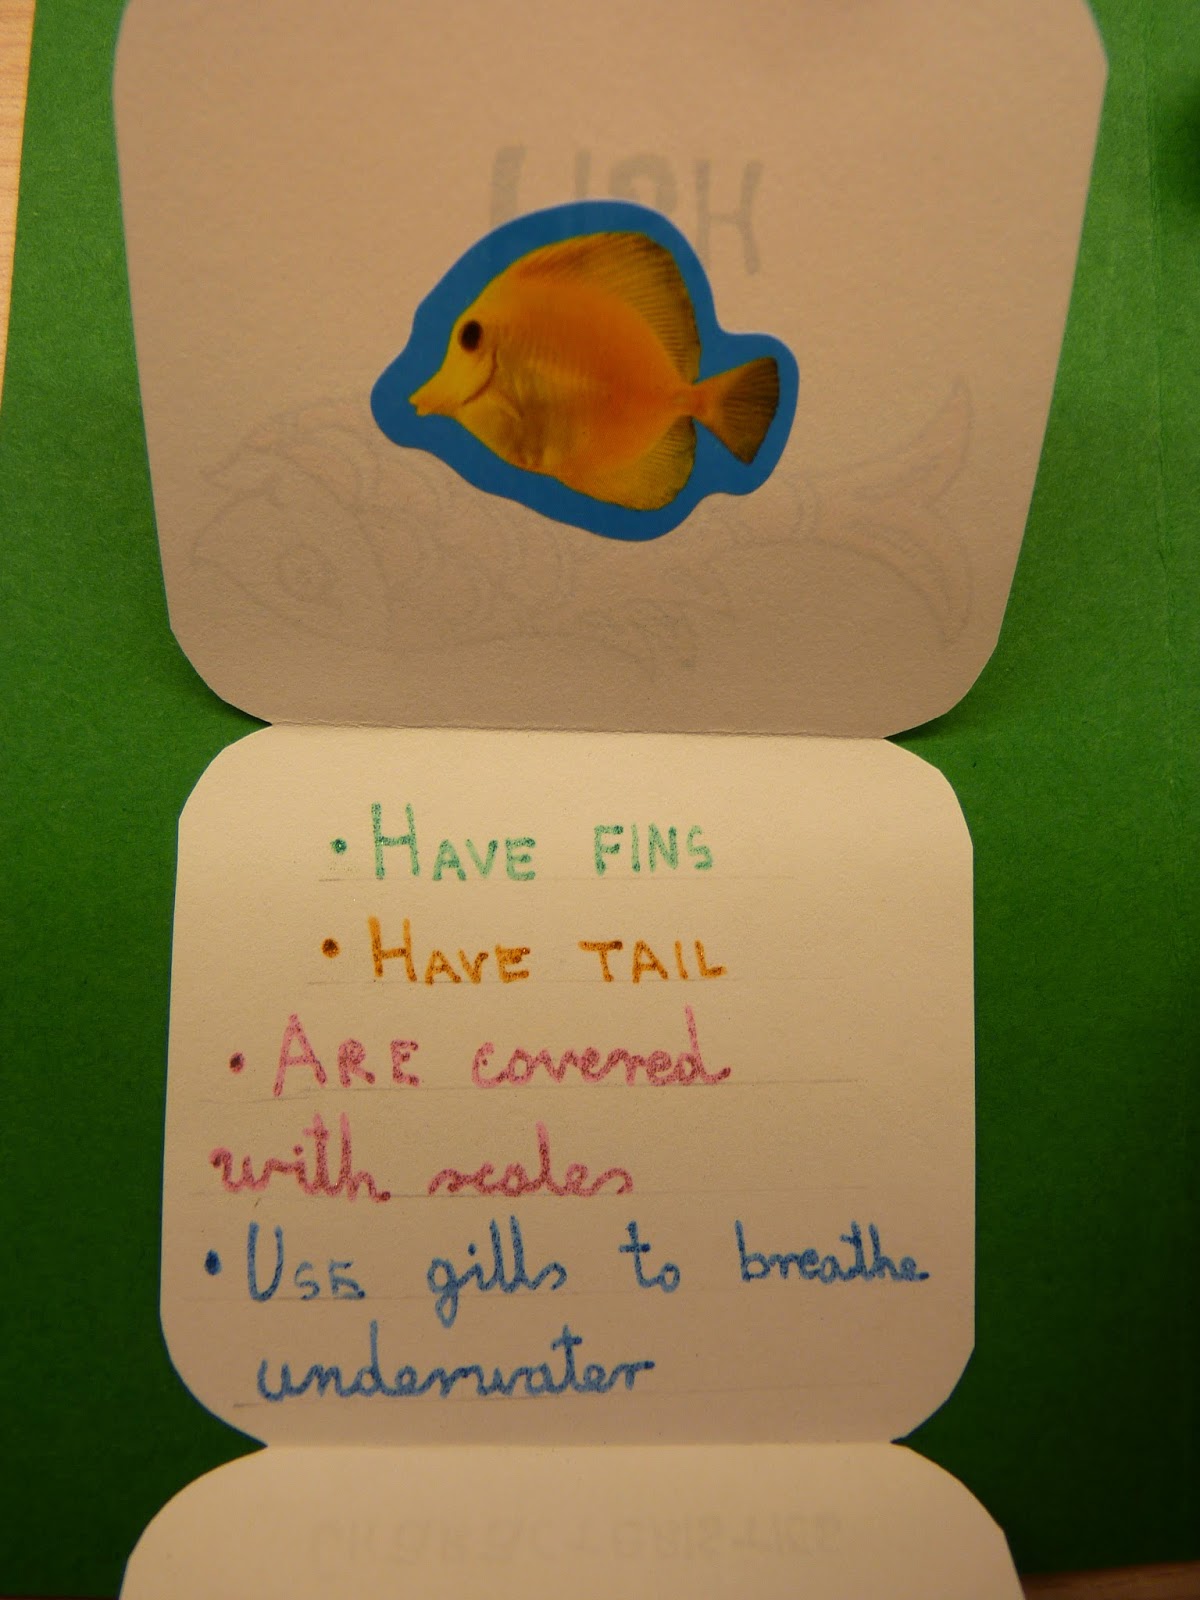 FISH
• HAVE FINS
• HAVE TAIL
• ARE covered
with scales
• USE gills to breathe
underwater
CHARACTERISTICS